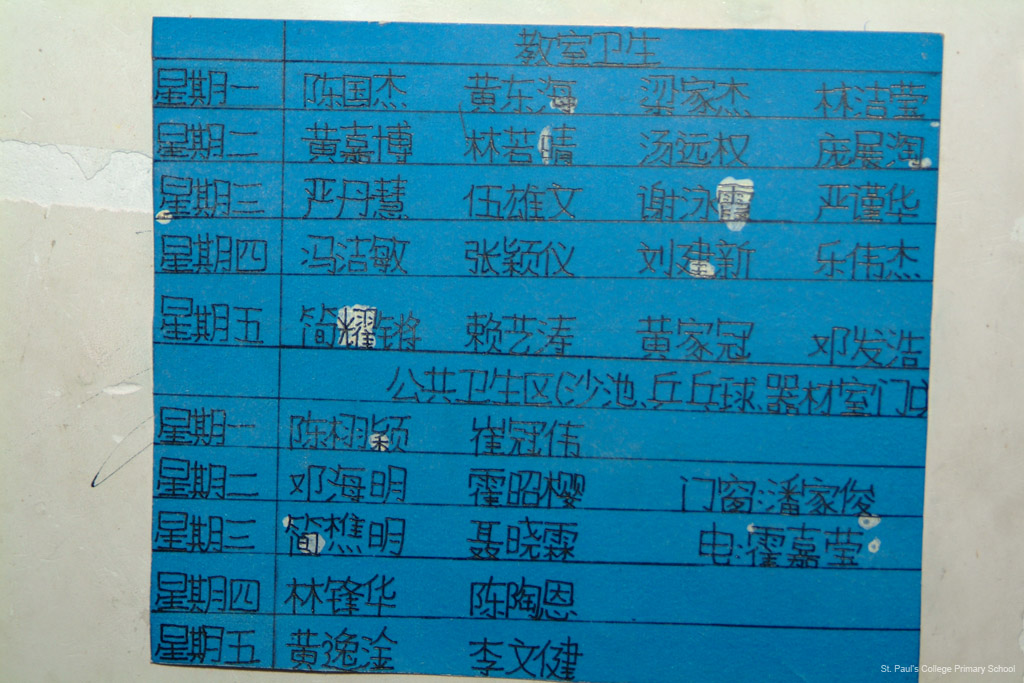 教室卫生
星期一 陈国杰 黄东海 梁家杰 林洁莹
星期二 黄嘉博 林若晴 汤远权 庞晨淘
星期三 严丹慧 伍雄文 谢泳霞 严谨华
星期四 冯洁敏 张颖仪 刘建新 乐伟杰
星期五 简耀锵 赖艺涛 黄家冠 邓发浩
公共卫生区(沙池、乒乓球、器材室门口
星期一 陈栩颖 崔冠伟
星期二 邓海明 霍昭樱 门窗:潘家俊
星期三 简樵明 聂晓霖 电:霍嘉莹
星期四 林锋华 陈陶恩
星期五 黄逸淦 李文健
St. Paul's College Primary School